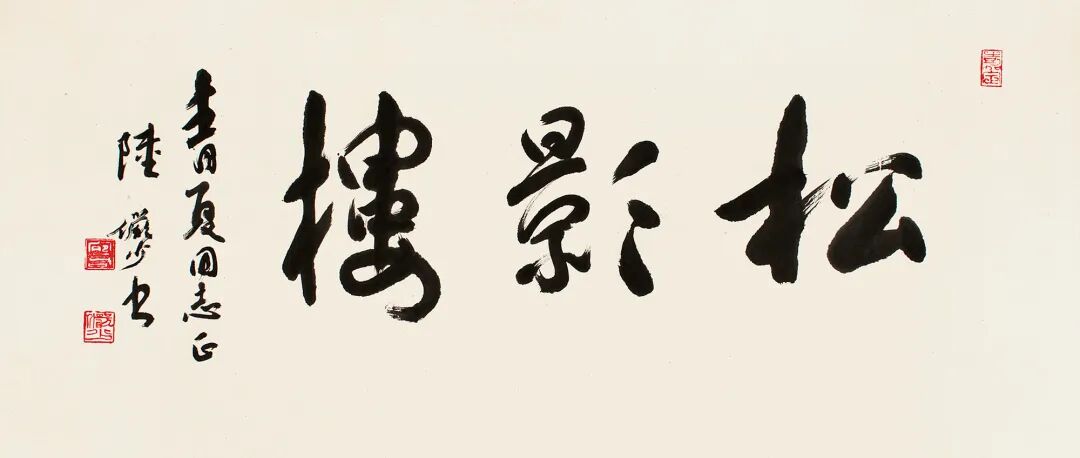 松影樓
青夏同志正
陸儼少書